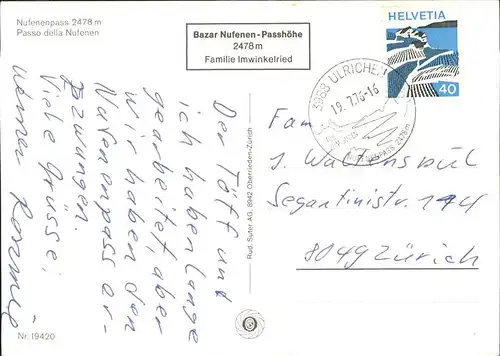 Nufenenpass 2478 m
Passo della Nufenen
Bazar Nufenen-Passhöhe
2478 m
Familie Imwinkelried
HELVETIA
40
3988 ULRICHEN
19.7.76-16
NUFENENPASS 2478m
Der Töff und
ich haben lange
gearbeitet, aber
wir haben den
Nufenenpass er-
zwungen.
Viele Grüsse:
Werner
Fam.
J.
Segantinistr.
8049 Zürich
Rud. Suter AG, 8942 Oberrieden-Zürich
Nr. 19420